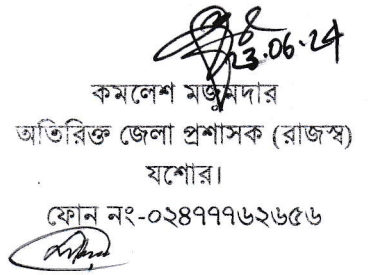 23.06.24
কমলেশ মজুমদার
অতিরিক্ত জেলা প্রশাসক (রাজস্ব)
যশোর।
ফোন নং-০২৪৭৭৭৬২৬৫৬